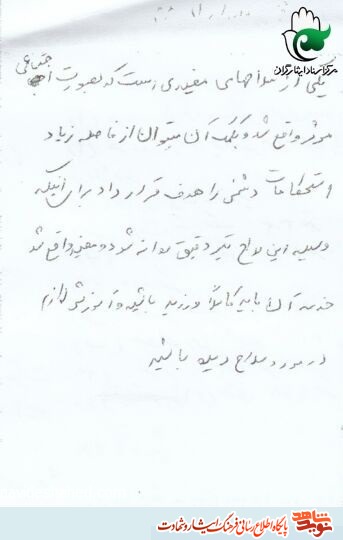 مرکز اسناد ایثارگران
یکی از سلاحهای مفیدی است که بصورت اجتماعی
موثر واقع شد و بکمک آن میتوان از فاصله زیاد
استحکامات دشمن را هدف قرار داد برای اینکه
وسیله این سلاح تیر دقیق روانه شد و مفید واقع شد
خدمه آن باید کاملاً ورزیده باشید و آموزش لازم
در مورد سلاح دیده باشید
نوید شاهد
پایگاه اطلاع رسانی فرهنگ ایثار و شهادت